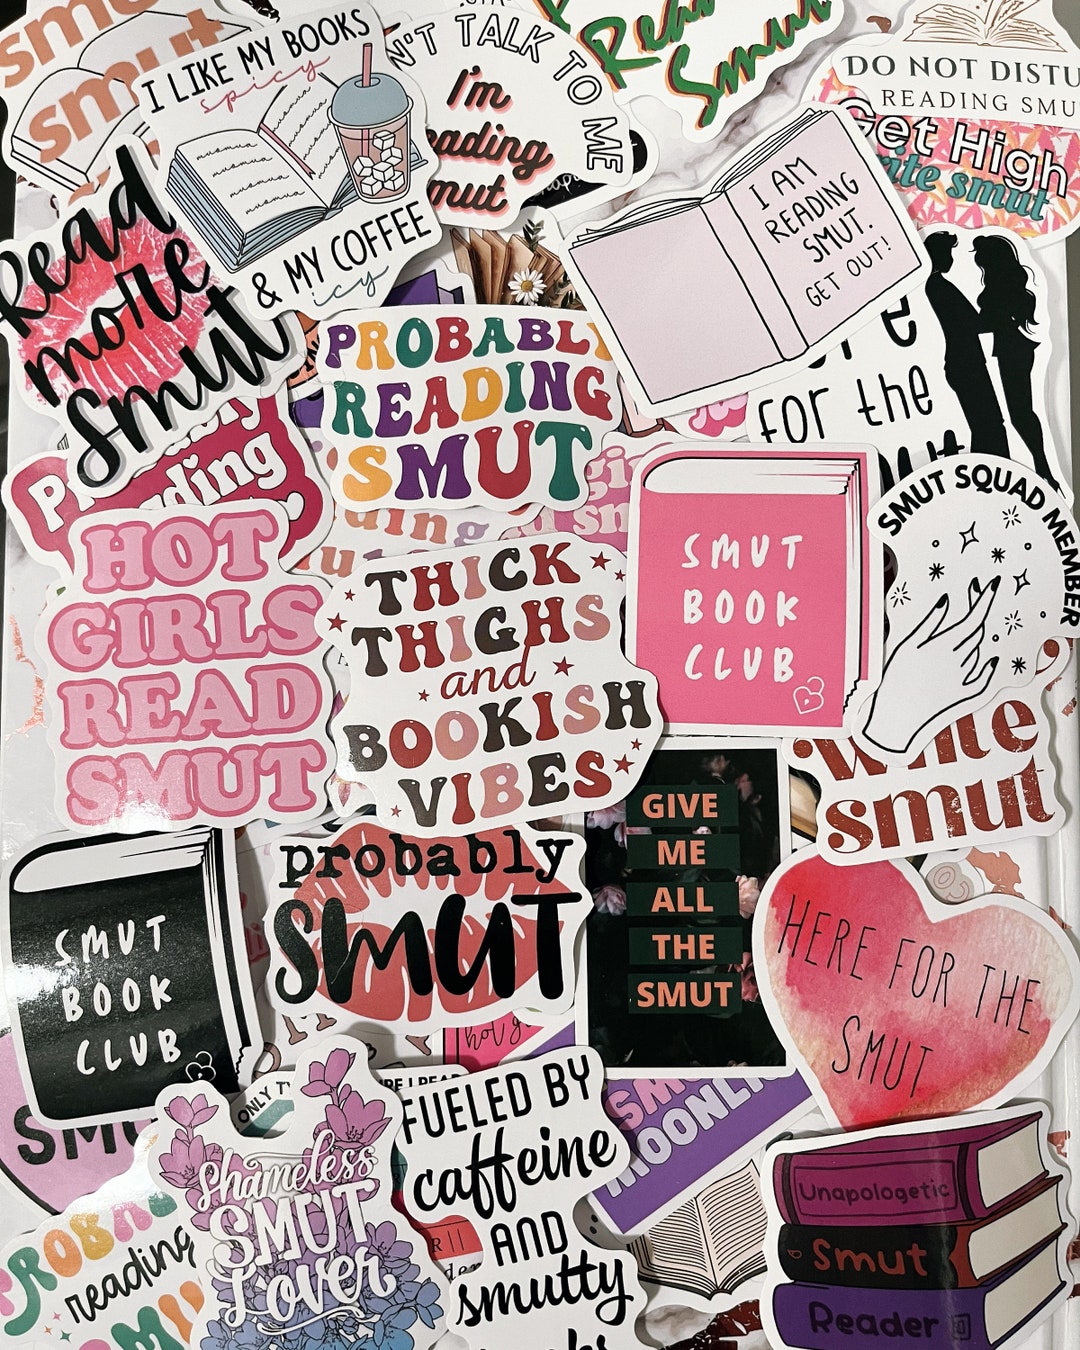 smut
smut
I LIKE MY BOOKS
spicy
& MY COFFEE
icy
N'T TALK TO ME
I'm
reading
smut
Read
Smut
DO NOT DISTU
READING SMU
Get High
write smut
I AM
READING
SMUT.
GET OUT!
Read
more
smut
PROBABLY
READING
SMUT
for the
SMUT SQUAD MEMBER
Probably
Reading
HOT
GIRLS
READ
SMUT
THICK
THIGHS
and
BOOKISH
VIBES
SMUT
BOOK
CLUB
write
smut
GIVE
ME
ALL
THE
SMUT
SMUT
BOOK
CLUB
probably
SMUT
HERE FOR THE
SMUT
hot g
ONLY T
I READ
SMU
Shameless
SMUT
Lover
FUELED BY
caffeine
AND
smutty
SMU
NOONLI
Unapologetic
Smut
Reader
PROBA
reading
SMU